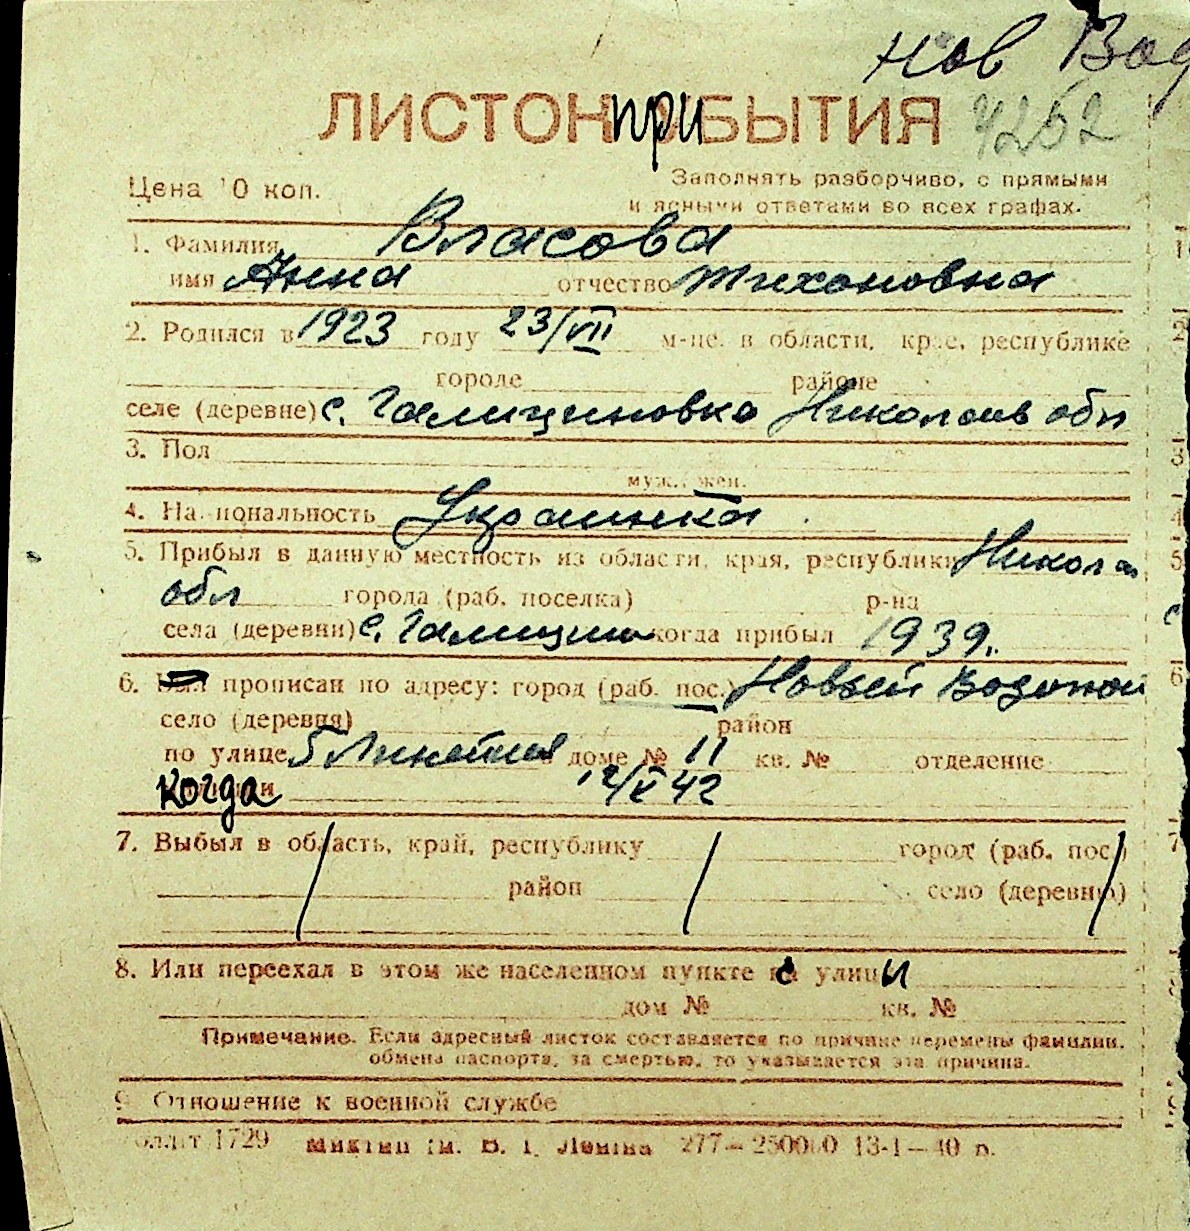 Нов Вод
4252
ЛИСТОК при БЫТИЯ
Цена 10 коп.
Заполнять разборчиво, с прямыми
и ясными ответами во всех графах.
1. Фамилия Власова
имя Анна отчество Тихоновна
2. Родился в 1923 году 23/VII м-це, в области, крае, республике
городе районе
селе (деревне) с. Галициновка Николаев обл
3. Пол
муж., жен.
4. Национальность Украинка
5. Прибыл в данную местность из области, края, республики Никола
обл города (раб. поселка) р-на
села (деревни) с. Галицин когда прибыл 1939.
6. прописан по адресу: город (раб. пос.) Новый Водопой
село (деревня) район
по улице 5 Линейная доме № 11 кв. № отделение
когда 12/X 42
7. Выбыл в область, край, республику город (раб. пос.)
район село (деревня)
8. Или переехал в этом же населенном пункте с улицы
дом № кв. №
Примечание. Если адресный листок составляется по причине перемены фамилии,
обмена паспорта, за смертью, то указывается эта причина.
9. Отношение к военной службе
1729 им. В. І. Леніна 277—250000 13-I—40 р.